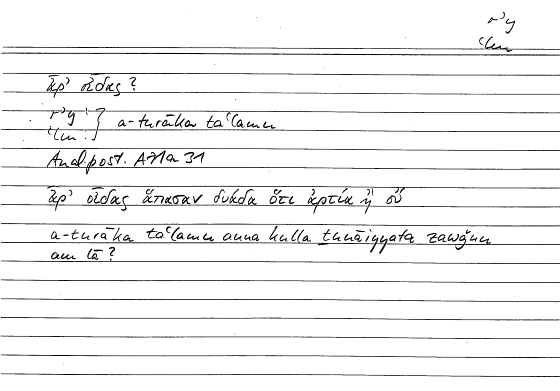 rʾy
ʿlm
ἆρ' οἶδας?
rʾy :
ʿlm : } a-turāka taʿlamu
Anal.post. A71a 31
ἆρ' οἶδας ἅπασαν δυάδα ὅτι ἀρτία ἢ οὔ
a-turāka taʿlamu anna kulla ṯunāiyyata zawǧun
am lā?